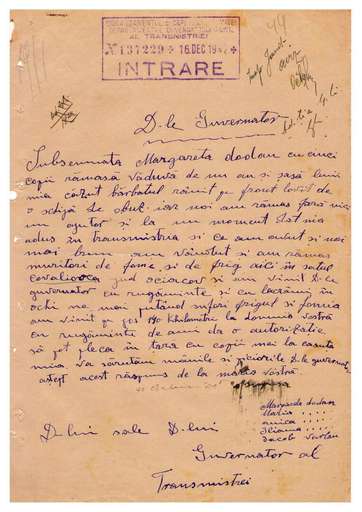 DEPARTAMENTUL
AL TRANSNISTRIEI
No 137229 * 16. DEC 1942 *
INTRARE
D-le Guvernator
Subsemnata Margareta dodan cu cinci
copii rămasă văduvă de un an și șasă luni
mia căzut bărbatul rănit pe front lovit de
o schijă de obuz iar noi am rămas fără nici
un ajutor și la un moment
adus în transnistria și ce am avut și noi
mai bun am vândut și am rămas
muritori de fome și de frig aici în satul
covaliovca jud ociacov și am venit D-le
guvernator cu rugăminte și cu lacrămi în
ochi ne mai putând suferi frigul și fomia
am venit pe jos 140 khilometri la domnia vostră
cu rugăminte de ami da o autorizație
să pot pleca în țara cu copii mei la casuta
mia. Va sărutăm mânile și picioarele D-le guvernator
aștept acest răspuns de la maria vostră.
Margareta dodan
Maria . . . .
anica . . . .
Iliana . . . .
Iacob
D-lui sale D-lui
Guvernator al
Transnistrei